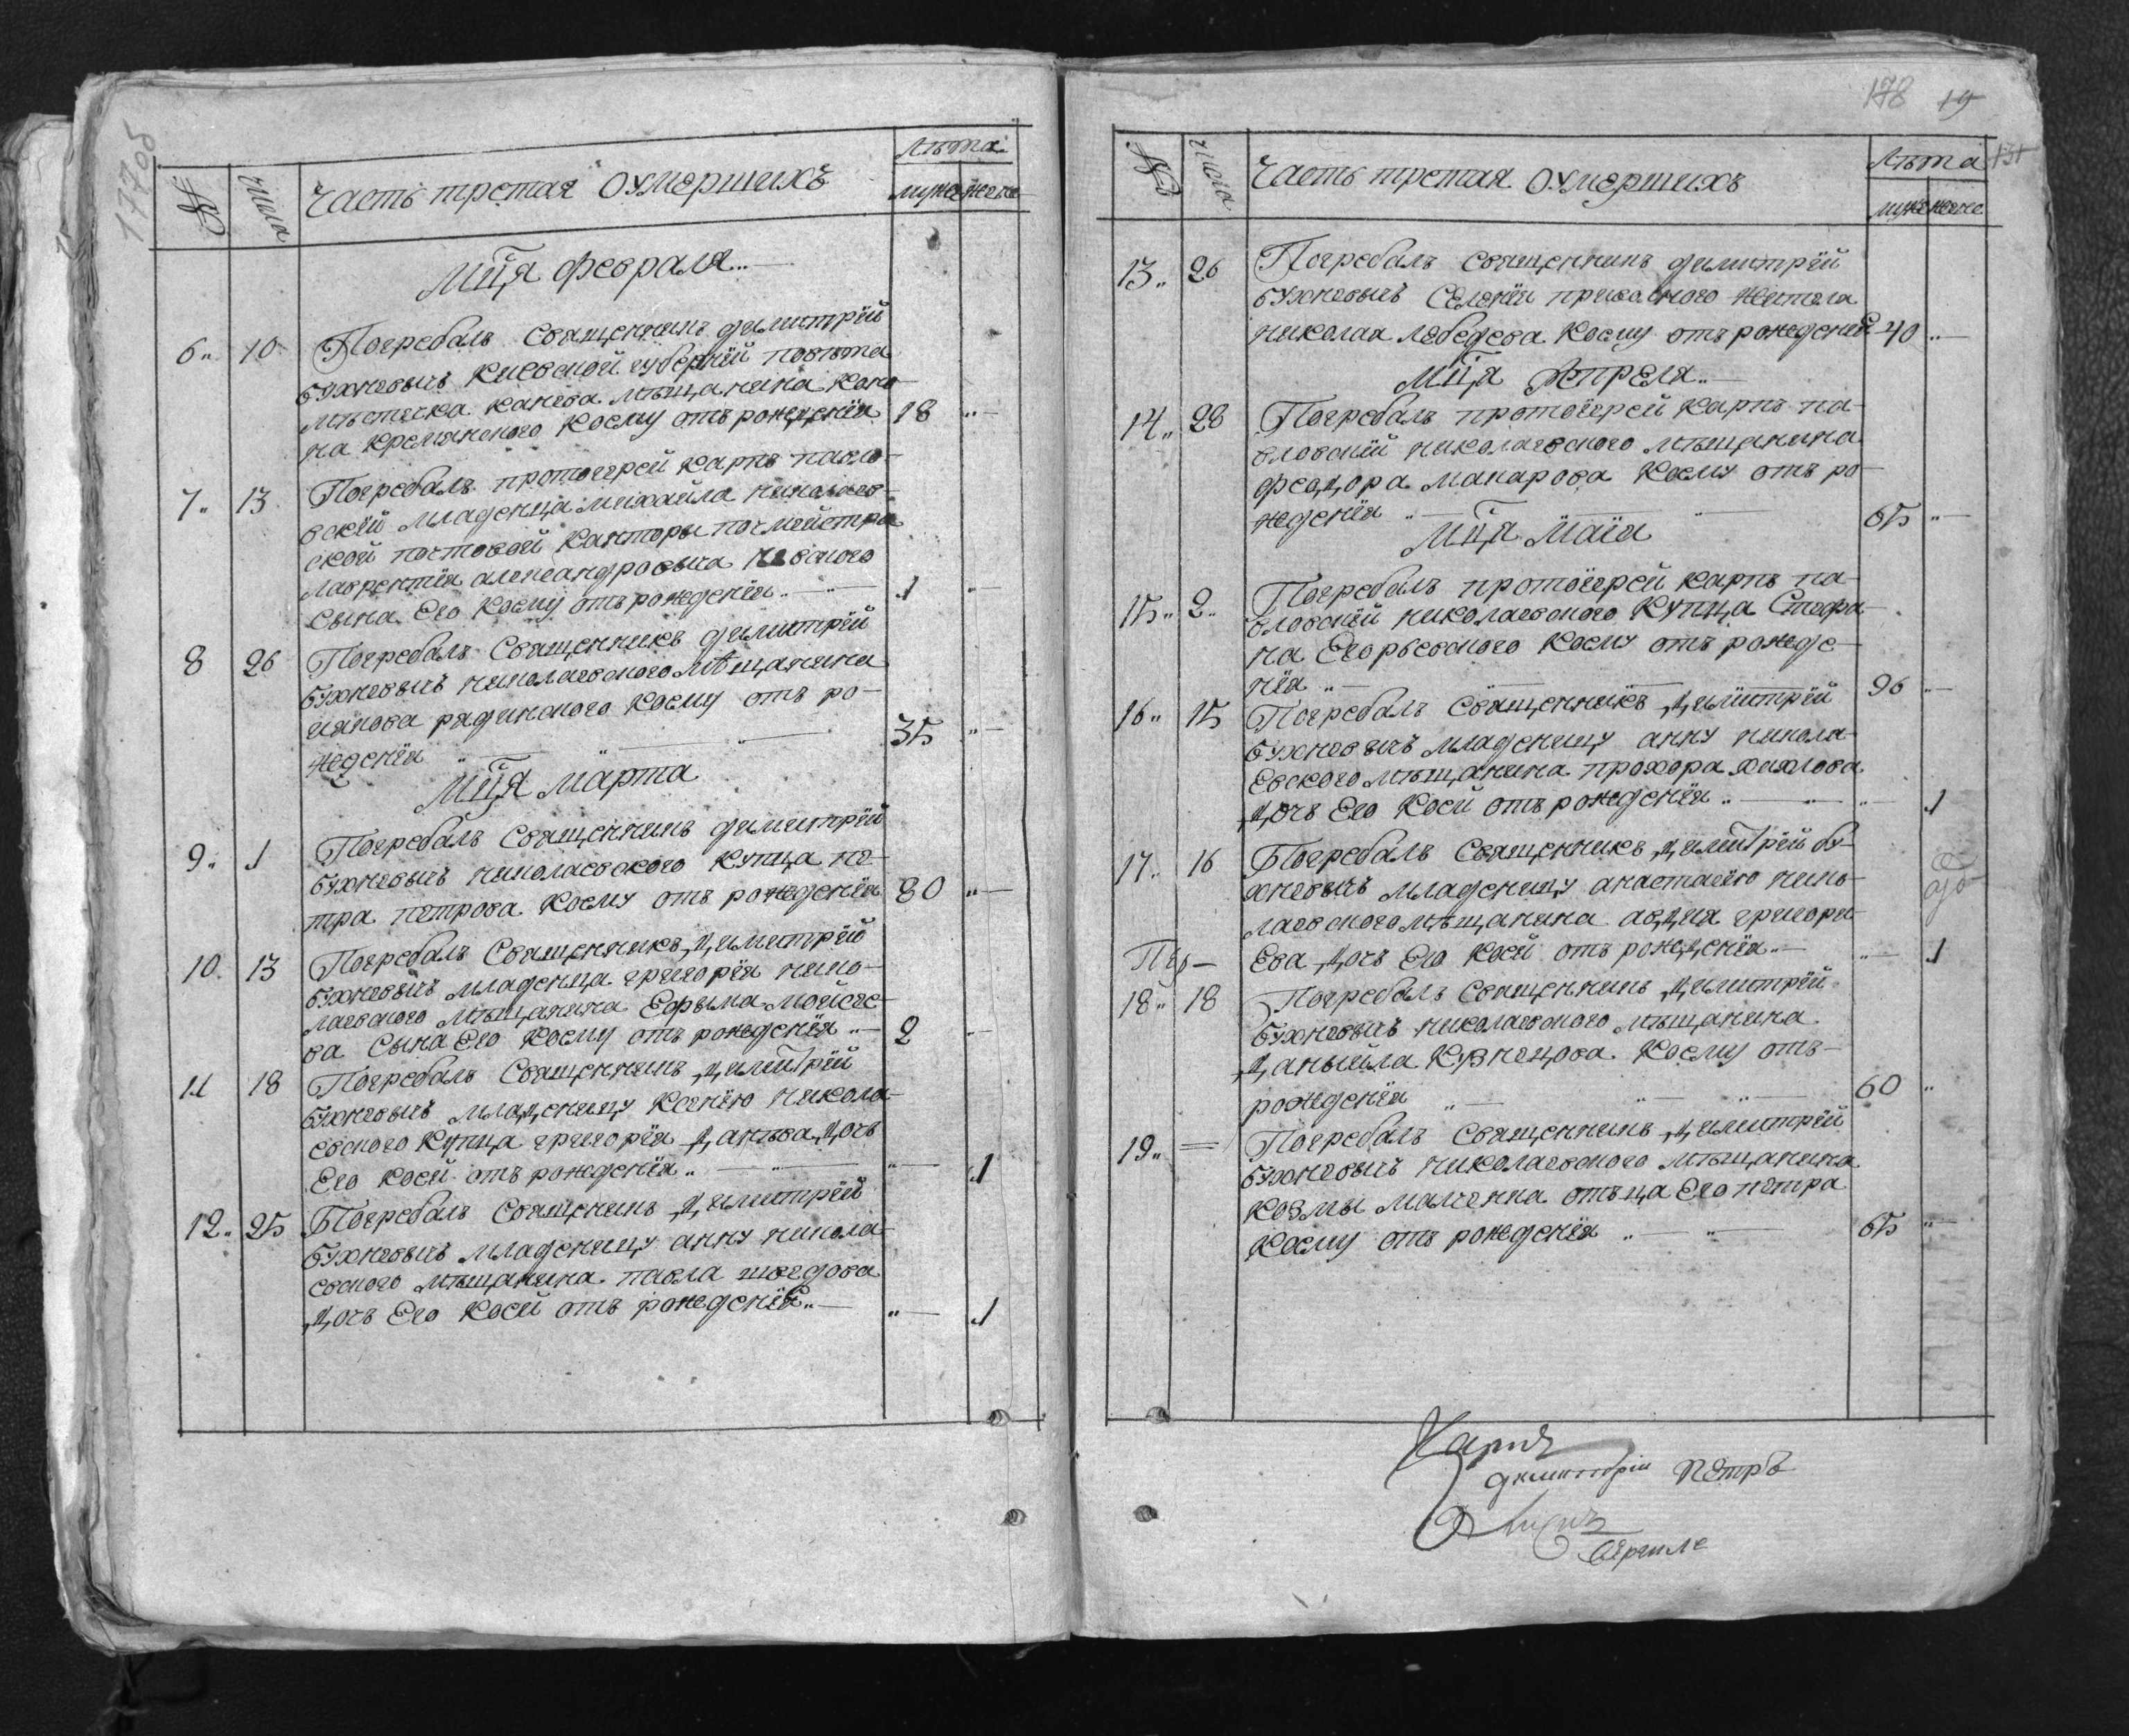 177об
№ числа Часть третая оумершихъ Лѣта
муж женс
Мц̃я февраля
6 10 Погребалъ Священникъ димитрїй
Бухневичъ Киевской губернїи повѣта
мѣстечка канева мѣщанина Коно
на Кремянского Коему отъ рождения 18
7 13 Погребалъ протоїерей карпъ павло-
вскїй младенца михайла николаев-
ской почтовой Канторы почмейстра
лаврентїя александровича
Сына Его Коему отъ рожденїя 1
8 26 Погребалъ Священникъ димитрїй
Бухневичъ николаевского мѣщанина
иякова радинского Коему отъ ро-
жденїя 35
Мц̃я марта
9 1 Погребалъ Священникъ димитрїй
Бухневичъ николаевского купца пе-
тра петрова Коему отъ рожденїя 80
10 13 Погребалъ Священникъ димитрїй
Бухневичъ младенца григорїя нико-
лаевского мѣщанина Ефыма мойсее-
ва Сына Его Коему отъ рожденїя 2
11 18 Погребалъ Священникъ димитрїй
Бухневичъ младеницу Ксенїю никола-
евского Купца григорїя данѣва дочь
Его Коей отъ рожденїя 1
12 25 Погребалъ Священикъ димитрїй
Бухневичъ младеницу анну никола
евского мѣщанина павла шведова
дочь Его Коей отъ рожденїя 1
178 19
№ числа Часть третая оумершихъ Лѣта
муж женс
13 26 Погребалъ Священникъ димитрїй
Бухневичъ Селенїя приказного жителя
николая лебедева Коему отъ рожденїя 40
Мц̃я Апреля
14 28 Погребалъ протоїерей карпъ па-
вловскїй николаевского мѣщанина
феодора макарова Коему отъ ро-
жденїя 65
Мц̃я Маїя
15 2 Погребалъ протоїерей карпъ па-
вловскїй николаевского Купца Стефа-
на Егорьевского Коему отъ рожде-
нїя 96
16 15 Погребалъ Священникъ димитрїй
Бухневичъ младеницу анну никола-
евского мѣщанина прохора хихлова
дочь Его Коей отъ рожденїя 1
17 16 Погребалъ Священникъ димитрїй Бу-
хневичъ младеницу анастасию нико-
лаевского мѣщанина авдия григори-
ева дочь Его Коей отъ рожденїя 1
18 18 Погребалъ Священникъ димитрїй
Бухневичъ николаевского мѣщанина
даныйла Кузнецова Коему отъ
рожденїя 60
19 Погребалъ Священникъ димитрїй
Бухневичъ николаевского мѣщанина
Козмы Малченка отъца Его петра
Коему отъ рожденїя 65
Карпъ
димитрїй Петръ